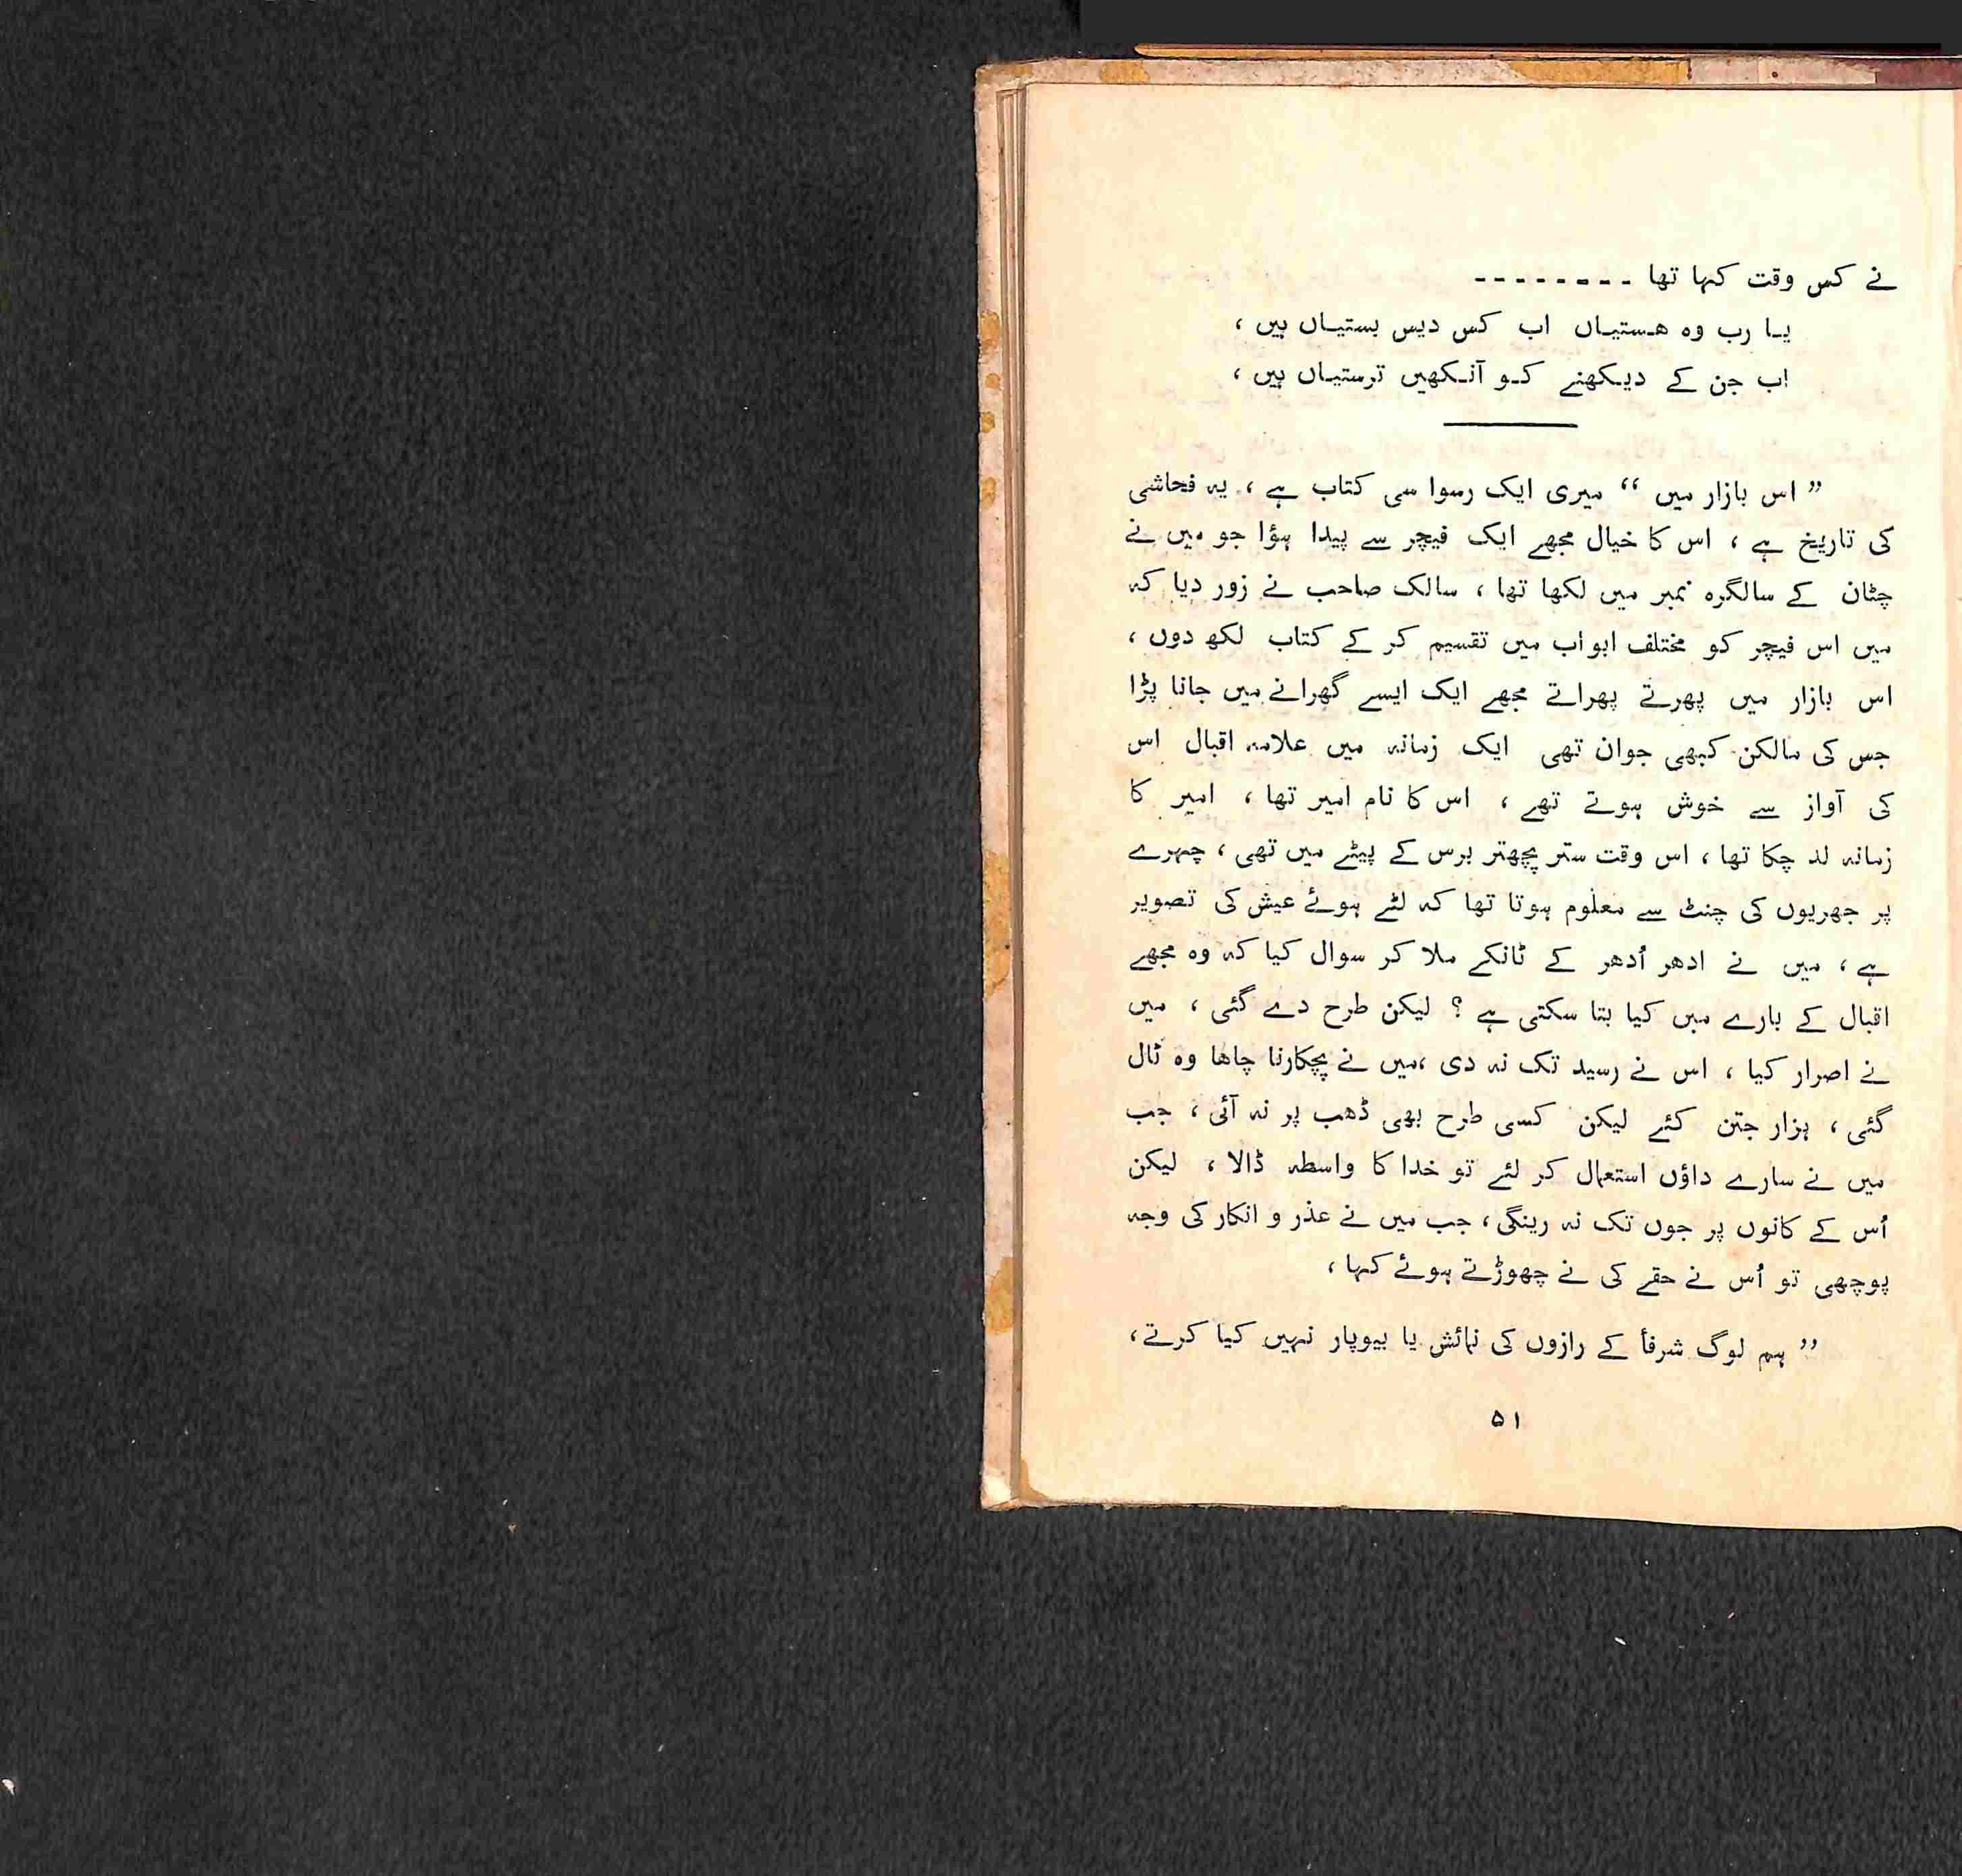 نے کس وقت کہا تھا - - - - - - - -
یا رب وہ ہستیاں اب کس دیس بستیاں ہیں ،
اب جن کے دیکھنے کو آنکھیں ترستیاں ہیں ،
” اس بازار میں “ میری ایک رسوا سی کتاب ہے ، یہ فحاشی
کی تاریخ ہے ، اس کا خیال مجھے ایک فیچر سے پیدا ہؤا جو میں نے
چٹان کے سالگرہ نمبر میں لکھا تھا ، سالک صاحب نے زور دیا کہ
میں اس فیچر کو مختلف ابواب میں تقسیم کر کے کتاب لکھ دوں ،
اس بازار میں پھرتے پھراتے مجھے ایک ایسے گھرانے میں جانا پڑا
جس کی مالکن کبھی جوان تھی ایک زمانہ میں علامہ اقبال اس
کی آواز سے خوش ہوتے تھے ، اس کا نام امیر تھا ، امیر کا
زمانہ لد چکا تھا ، اس وقت ستر پچھتر برس کے پیٹے میں تھی ، چہرے
پر جھریوں کی چنٹ سے معلوم ہوتا تھا کہ لٹے ہوئے عیش کی تصویر
ہے ، میں نے ادھر اُدھر کے ٹانکے ملا کر سوال کیا کہ وہ مجھے
اقبال کے بارے میں کیا بتا سکتی ہے ؟ لیکن طرح دے گئی ، میں
نے اصرار کیا ، اس نے رسید تک نہ دی ،میں نے پچکارنا چاھا وہ ٹال
گئی ، ہزار جتن کئے لیکن کسی طرح بھی ڈھب پر نہ آئی ، جب
میں نے سارے داؤں استعمال کر لئے تو خدا کا واسطہ ڈالا ، لیکن
اُس کے کانوں پر جوں تک نہ رینگی ، جب میں نے عذر و انکار کی وجہ
پوچھی تو اُس نے حقے کی نے چھوڑتے ہوئے کہا ،
” ہم لوگ شرفأ کے رازوں کی نمائش یا بیوپار نہیں کیا کرتے ،
۵۱